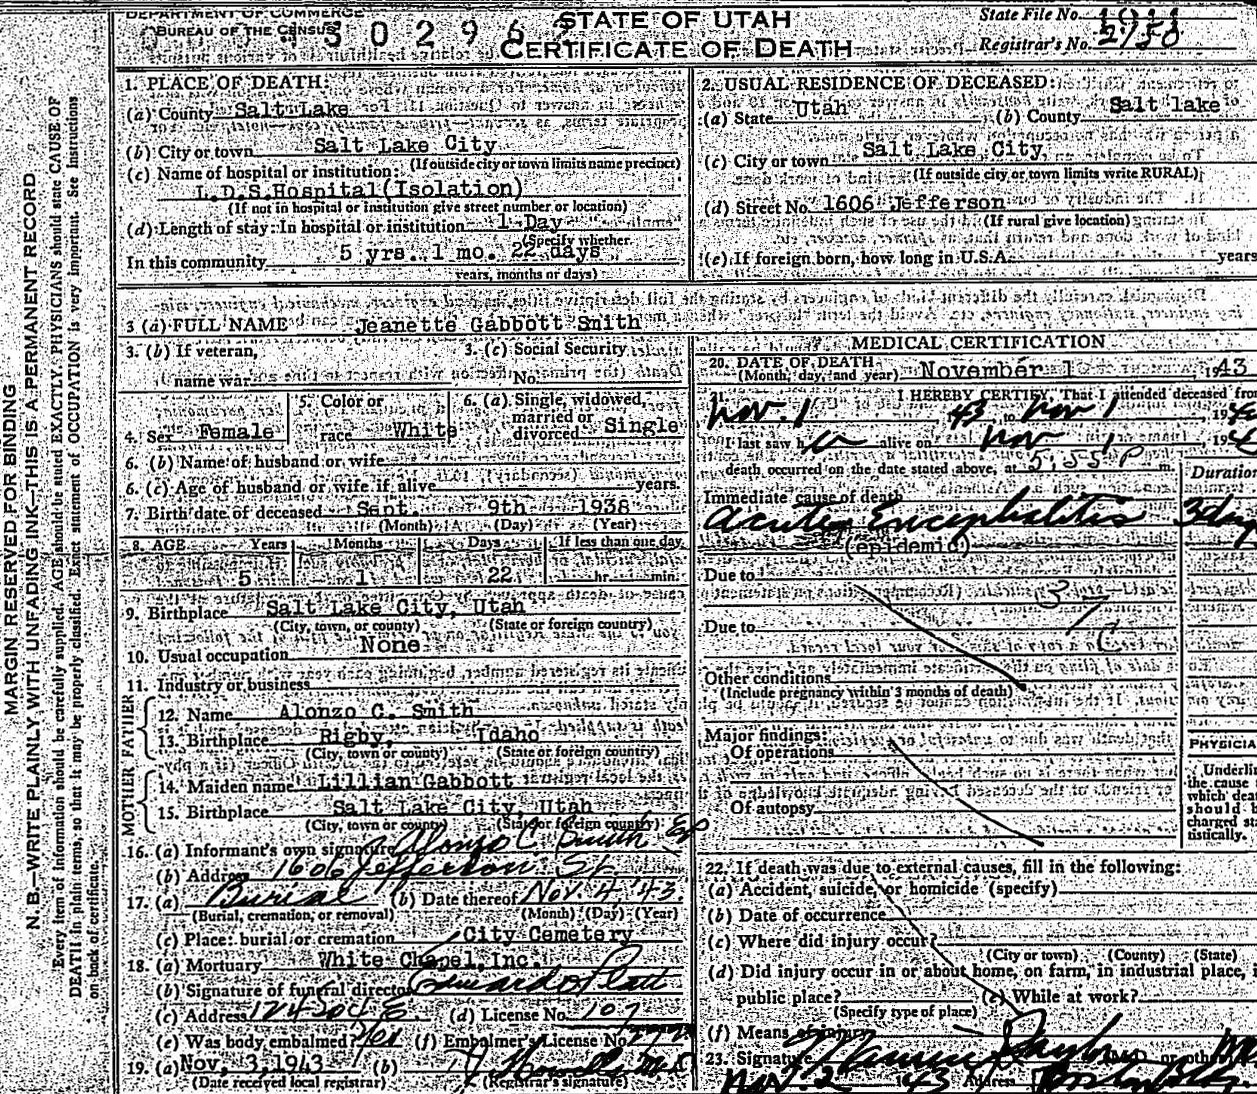 DEPARTMENT OF COMMERCE
BUREAU OF THE CENSUS
30296
STATE OF UTAH
CERTIFICATE OF DEATH
State File No.
Registrar's No. 2150
MARGIN RESERVED FOR BINDING
N. B.—WRITE PLAINLY WITH UNFADING INK—THIS IS A PERMANENT RECORD
Every item of information should be carefully supplied. AGE should be stated EXACTLY. PHYSICIANS should state CAUSE OF
DEATH in plain terms, so that it may be properly classified. Exact statement of OCCUPATION is very important. See instructions
on back of certificate.
1. PLACE OF DEATH:
(a) County Salt Lake
(b) City or town Salt Lake City
(If outside city or town limits name precinct)
(c) Name of hospital or institution:
L.D.S. Hospital (Isolation)
(If not in hospital or institution give street number or location)
(d) Length of stay: In hospital or institution 1 Day
(Specify whether
In this community 5 yrs. 1 mo. 22 days
years, months or days)
2. USUAL RESIDENCE OF DECEASED:
(a) State Utah (b) County Salt lake
(c) City or town Salt Lake City
(If outside city or town limits write RURAL)
(d) Street No. 1606 Jefferson
(If rural give location)
(e) If foreign born, how long in U.S.A. years
3 (a) FULL NAME Jeanette Gabbott Smith
3. (b) If veteran,
name war
3. (c) Social Security
No.
4. Sex Female
5. Color or
race White
6. (a) Single, widowed,
married or
divorced Single
6. (b) Name of husband or wife
6. (c) Age of husband or wife if alive years.
7. Birth date of deceased Sept. 9th 1938
(Month) (Day) (Year)
8. AGE Years Months Days If less than one day
5 1 22 hr. min.
9. Birthplace Salt Lake City, Utah
(City, town, or county) (State or foreign country)
10. Usual occupation None
11. Industry or business
FATHER
12. Name Alonzo C. Smith
13. Birthplace Rigby, Idaho
(City, town or county) (State or foreign country)
MOTHER
14. Maiden name Lillian Gabbott
15. Birthplace Salt Lake City, Utah
(City, town or county) (State or foreign country)
16. (a) Informant's own signature Alonzo C Smith
(b) Address 1606 Jefferson St.
17. (a) Burial (b) Date thereof Nov. 4, '43.
(Burial, cremation, or removal) (Month) (Day) (Year)
(c) Place: burial or cremation City Cemetery
18. (a) Mortuary White Chapel, Inc.
(b) Signature of funeral director Edward O Platt
(c) Address 124 So 4 E. (d) License No. 107
(e) Was body embalmed? Yes (f) Embalmer's License No.
19. (a) Nov, 3, 1943 (b)
(Date received local registrar) (Registrar's signature)
MEDICAL CERTIFICATION
20. DATE OF DEATH
(Month, day, and year) November 1, 1943
21. I HEREBY CERTIFY, That I attended deceased from
Nov. 1 43 to Nov 1 194
I last saw her alive on Nov 1, 194
death occurred on the date stated above, at 5:55 P m. Duration
Immediate cause of death
Acute Encephalitis 3 days
(epidemic)
Due to
Due to
Other conditions
(Include pregnancy within 3 months of death)
Major findings:
Of operations
Of autopsy
PHYSICIA
Underline
the cause
which dea
should
charged sta
tistically.
22. If death was due to external causes, fill in the following:
(a) Accident, suicide, or homicide (specify)
(b) Date of occurrence
(c) Where did injury occur?
(City or town) (County) (State)
(d) Did injury occur in or about home, on farm, in industrial place, i
public place? (e) While at work?
(Specify type of place)
(f) Means of injury
23. Signature Taylor M.D. or other
Nov. 2 43 Address